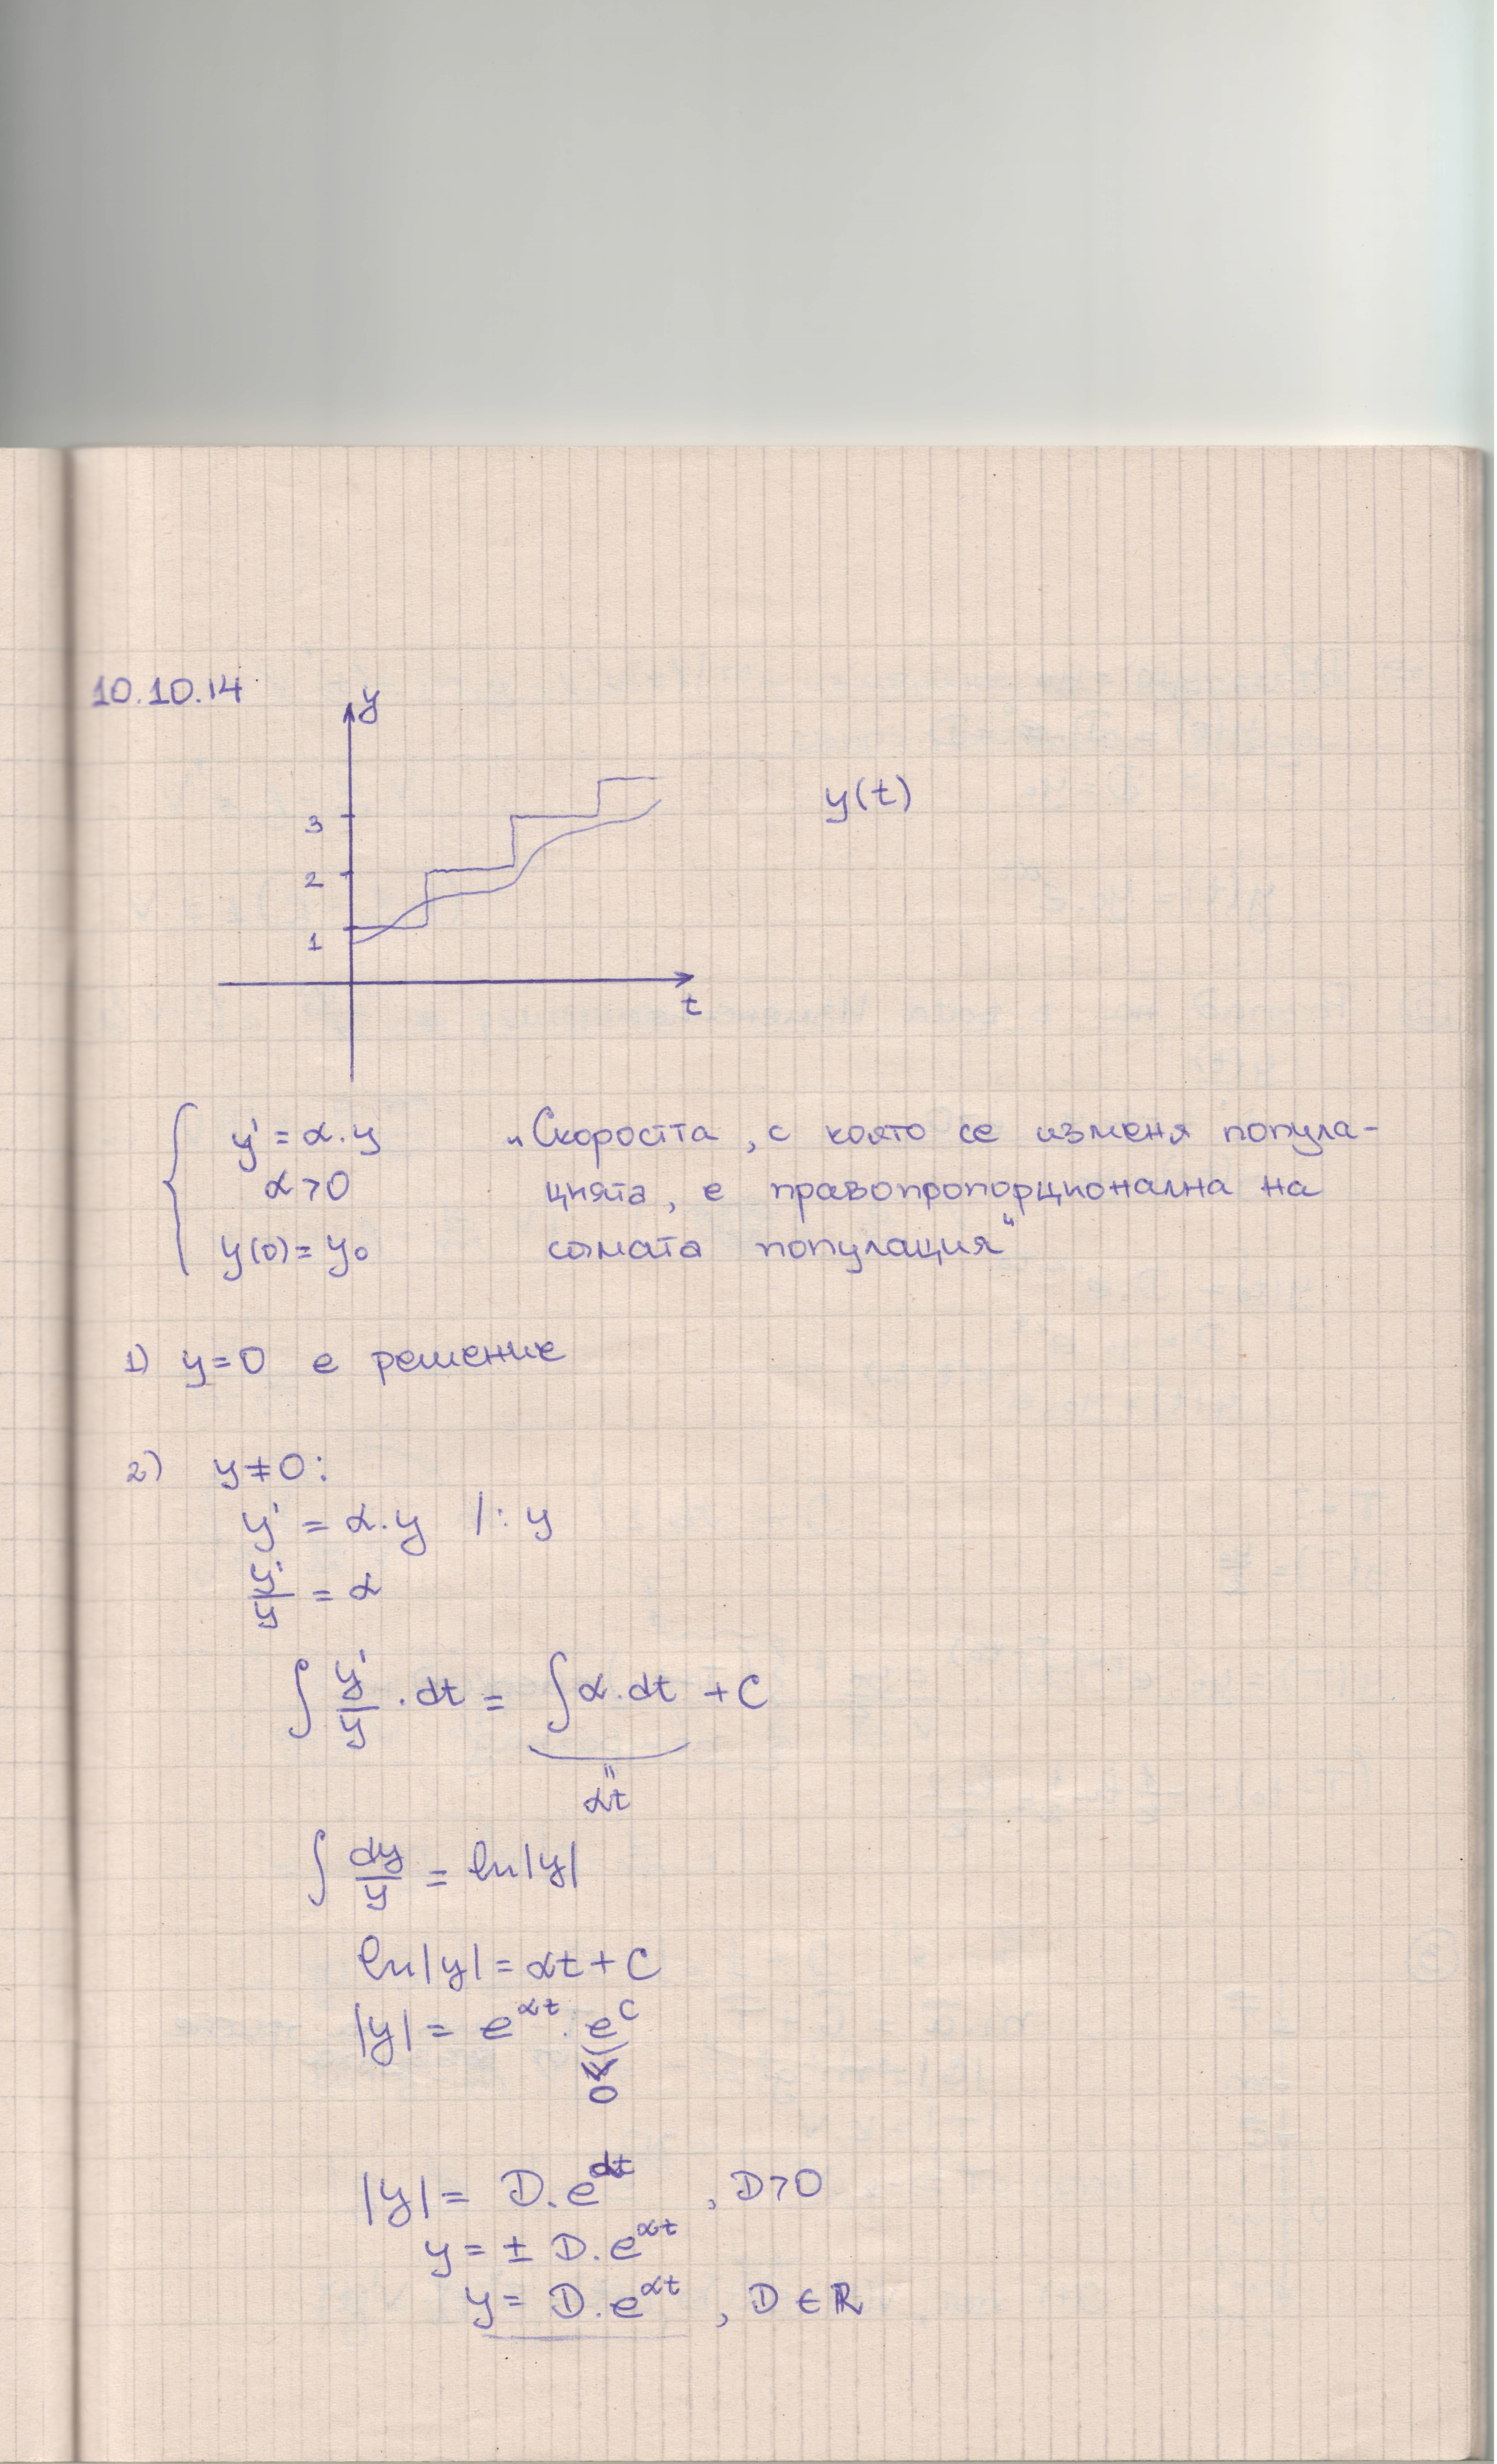 10.10.14
y
y(t)
3
2
1
t
y' = α.y „Скоростта, с която се изменя попула-
α>0 цията, е правопропорционална на
y(0)=y₀ самата популация"
1) y=0 е решение
2) y≠0:
y' = α.y /:y
y'/y = α
∫ y'/y . dt = ∫α.dt + C
αt
∫ dy/y = ln|y|
ln|y| = αt + C
|y| = e^αt . e^C
0
|y| = D.e^αt , D>0
y = ± D.e^αt
y = D.e^αt , D ∈ ℝ